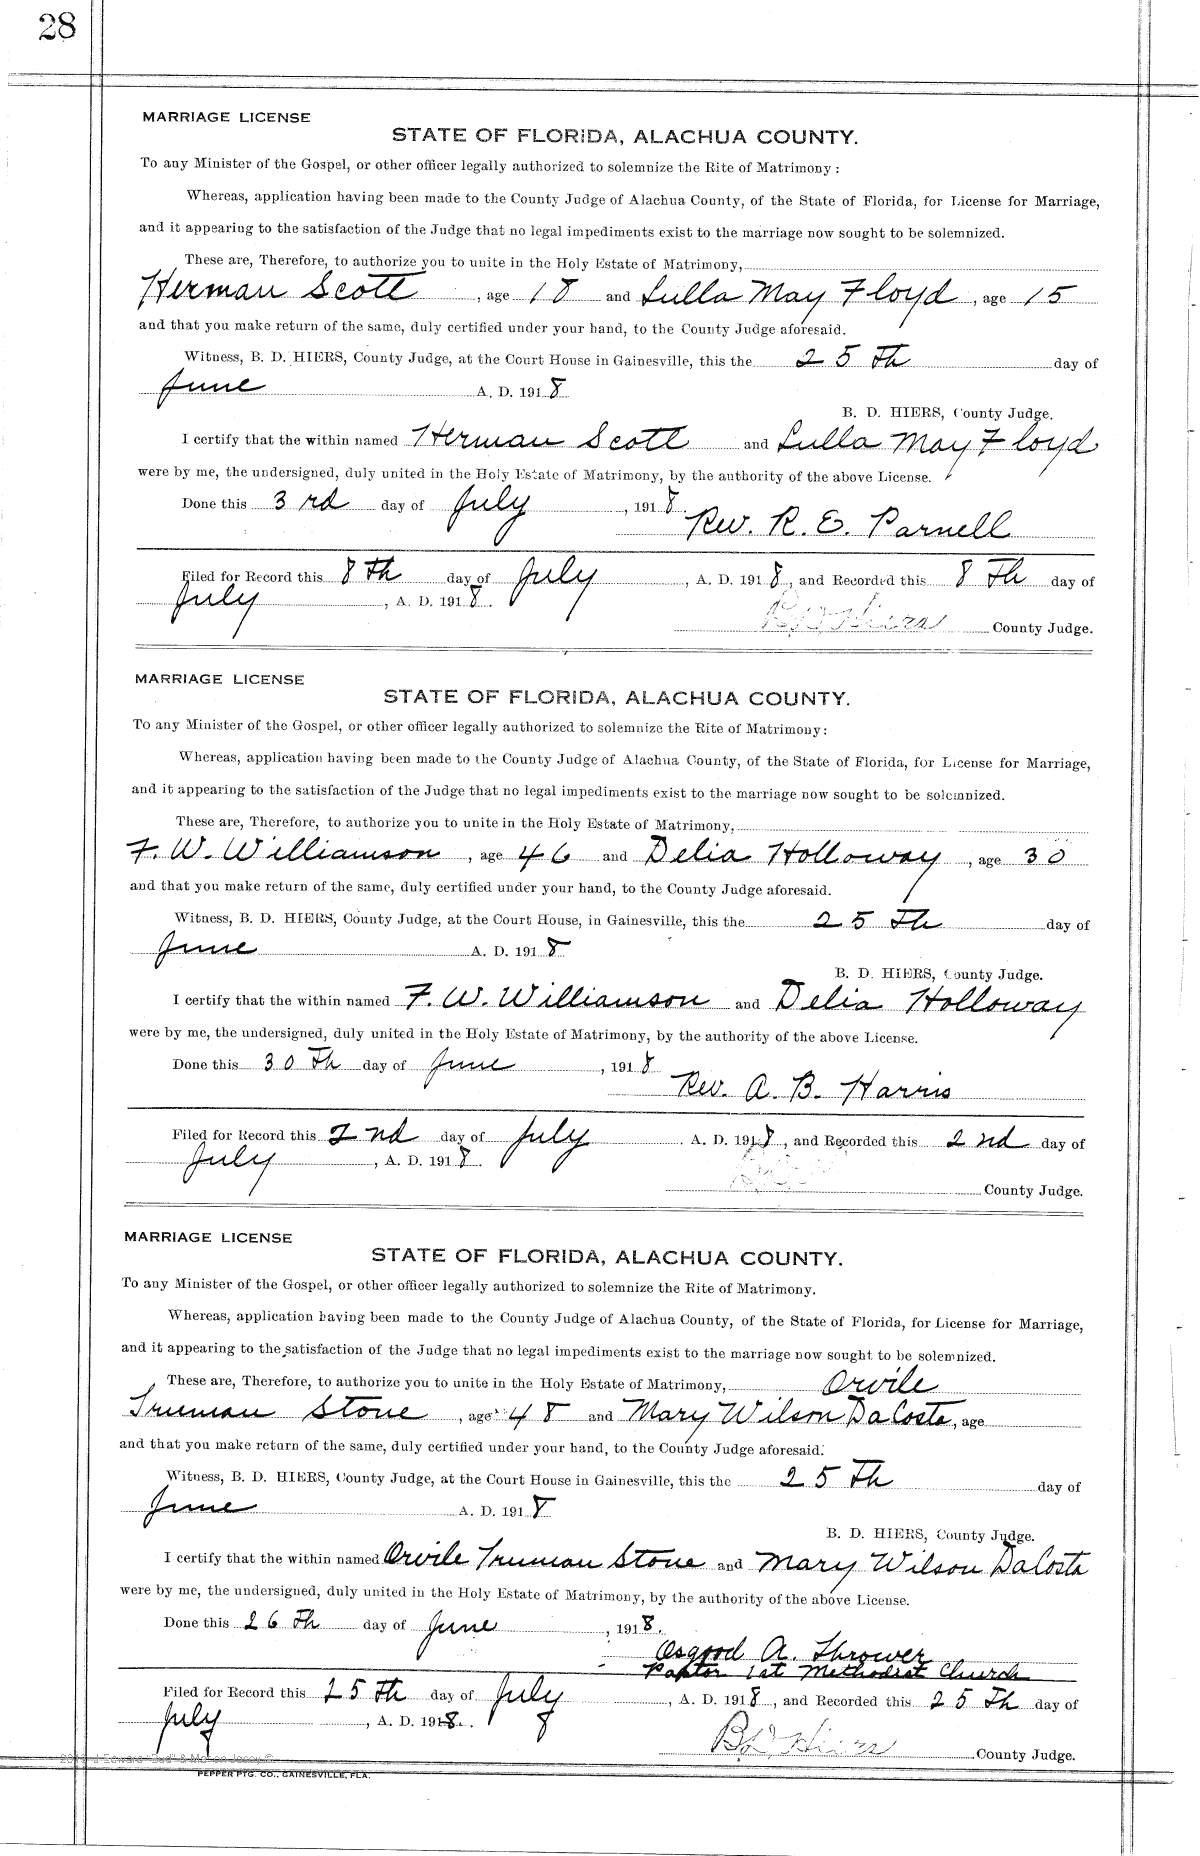 28
MARRIAGE LICENSE
STATE OF FLORIDA, ALACHUA COUNTY.
To any Minister of the Gospel, or other officer legally authorized to solemnize the Rite of Matrimony:
Whereas, application having been made to the County Judge of Alachua County, of the State of Florida, for License for Marriage,
and it appearing to the satisfaction of the Judge that no legal impediments exist to the marriage now sought to be solemnized.
These are, Therefore, to authorize you to unite in the Holy Estate of Matrimony,
Herman Scott, age 18 and Lulla May Floyd, age 15
and that you make return of the same, duly certified under your hand, to the County Judge aforesaid.
Witness, B. D. HIERS, County Judge, at the Court House in Gainesville, this the 25th day of
June A. D. 1918
B. D. HIERS, County Judge.
I certify that the within named Herman Scott and Lulla May Floyd
were by me, the undersigned, duly united in the Holy Estate of Matrimony, by the authority of the above License.
Done this 3rd day of July, 1918.
Rev. R. E. Parnell
Filed for Record this 8th day of July, A. D. 1918, and Recorded this 8th day of
July, A. D. 1918.
B D Hiers County Judge.
MARRIAGE LICENSE
STATE OF FLORIDA, ALACHUA COUNTY.
To any Minister of the Gospel, or other officer legally authorized to solemnize the Rite of Matrimony:
Whereas, application having been made to the County Judge of Alachua County, of the State of Florida, for License for Marriage,
and it appearing to the satisfaction of the Judge that no legal impediments exist to the marriage now sought to be solemnized.
These are, Therefore, to authorize you to unite in the Holy Estate of Matrimony,
F. W. Williamson, age 46 and Delia Holloway, age 30
and that you make return of the same, duly certified under your hand, to the County Judge aforesaid.
Witness, B. D. HIERS, County Judge, at the Court House, in Gainesville, this the 25th day of
June A. D. 1918
B. D. HIERS, County Judge.
I certify that the within named F. W. Williamson and Delia Holloway
were by me, the undersigned, duly united in the Holy Estate of Matrimony, by the authority of the above License.
Done this 30th day of June, 1918
Rev. A. B. Harris
Filed for Record this 2nd day of July A. D. 1918, and Recorded this 2nd day of
July, A. D. 1918.
County Judge.
MARRIAGE LICENSE
STATE OF FLORIDA, ALACHUA COUNTY.
To any Minister of the Gospel, or other officer legally authorized to solemnize the Rite of Matrimony.
Whereas, application having been made to the County Judge of Alachua County, of the State of Florida, for License for Marriage,
and it appearing to the satisfaction of the Judge that no legal impediments exist to the marriage now sought to be solemnized.
These are, Therefore, to authorize you to unite in the Holy Estate of Matrimony, Orvile
Truman Stone, age 48 and Mary Wilson DaCosta, age
and that you make return of the same, duly certified under your hand, to the County Judge aforesaid.
Witness, B. D. HIERS, County Judge, at the Court House in Gainesville, this the 25th day of
June A. D. 1918
B. D. HIERS, County Judge.
I certify that the within named Orvile Truman Stone and Mary Wilson DaCosta
were by me, the undersigned, duly united in the Holy Estate of Matrimony, by the authority of the above License.
Done this 26th day of June, 1918.
Osgood A. Thrower
Pastor 1st Methodist Church
Filed for Record this 25th day of July, A. D. 1918, and Recorded this 25th day of
July, A. D. 1918.
B D Hiers County Judge.
PEPPER PTG. CO., GAINESVILLE, FLA.